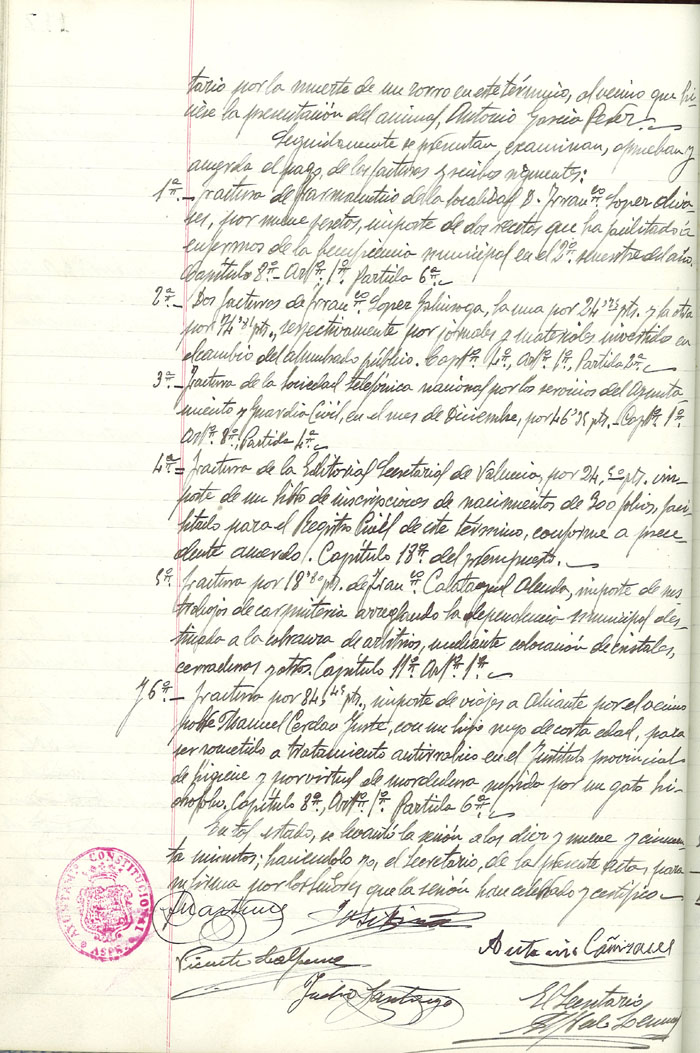 tario por la muerte de un zorro en este término, al vecino que hi-
ciese la presentación del animal, Antonio García Perez.
Seguidamente se presentan, examinan, aprueban y
acuerda el pago, de las facturas y recibos siguientes:
1ª.- Factura de farmacéutico de la localidad D. Fran.co Lopez Oliva-
res, por nueve pesetas, importe de dos recetas que ha facilitado a
enfermos de la beneficencia municipal en el 2º. semestre del año.
Capítulo 8º - Artº. 1º. Partida 6ª.
2ª.- Dos facturas de Fran.co Lopez, la una por 24 pts. y la otra
por 174 pts., respectivamente por jornales y materiales invertidos en
el cambio del alumbrado público. Capº. 4º, Artº. 1º, Partida 2ª.
3ª.- Factura de la Sociedad telefónica nacional por los servicios del Ayunta-
miento y Guardia Civil, en el mes de Diciembre, por 46'35 pts. - Capº. 1º.
Artº. 8º, Partida 4ª.
4ª = Factura de la Editorial Secretarial de Valencia, por 24,50 pts. im-
porte de un libro de inscripciones de nacimientos de 300 folios, faci-
litado para el Registro Civil de este término, conforme a prece-
dente acuerdo. Capítulo 18º. del presupuesto.
5ª. Factura por 18'80 pts. de Fran.co Calatayud Alenda, importe de sus
trabajos de carpinteria arreglando la dependencia municipal des-
tinada a la cobranza de arbitrios, mediante colocación de cristales,
cerraduras y otros. Capítulo 11º. Artº. 1º.
Y 6ª.- Factura por 84'45 pts., importe de viajes a Alicante por el vecino
pobre Manuel Cerdán Juste, con un hijo suyo de corta edad, para
ser sometido a tratamiento antirrábico en el Instituto provincial
de higiene y por virtud de mordedura sufrida por un gato hi-
drofobo. Capítulo 8º, Artº. 1º. Partida 6ª.
En tal estado, se levantó la sesión a las diez y nueve y cincuen-
ta minutos; haciéndolo yo, el Secretario, de la presente acta, para
su firma por los Señores que la sesión han celebrado y certifico.
AYUNTAMº CONSTITUCIONAL
ASPE
Martinez
Antonio Cañizares
Vicente Calpena
Pedro Santiago
El Secretario